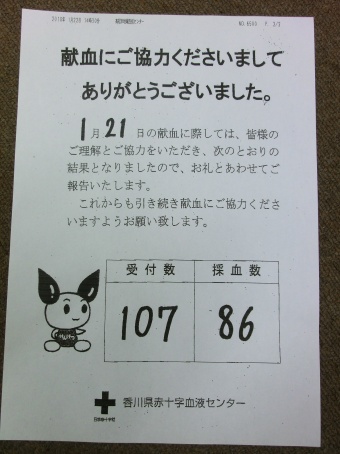 献血にご協力くださいまして
ありがとうございました。
1月21日の献血に際しては、皆様の
ご理解とご協力をいただき、次のとおりの
結果となりましたので、お礼とあわせてご
報告いたします。
これからも引き続き献血にご協力くださ
いますようお願い致します。
受付数 採血数
107 86
けんけつ
日本赤十字社
香川県赤十字血液センター